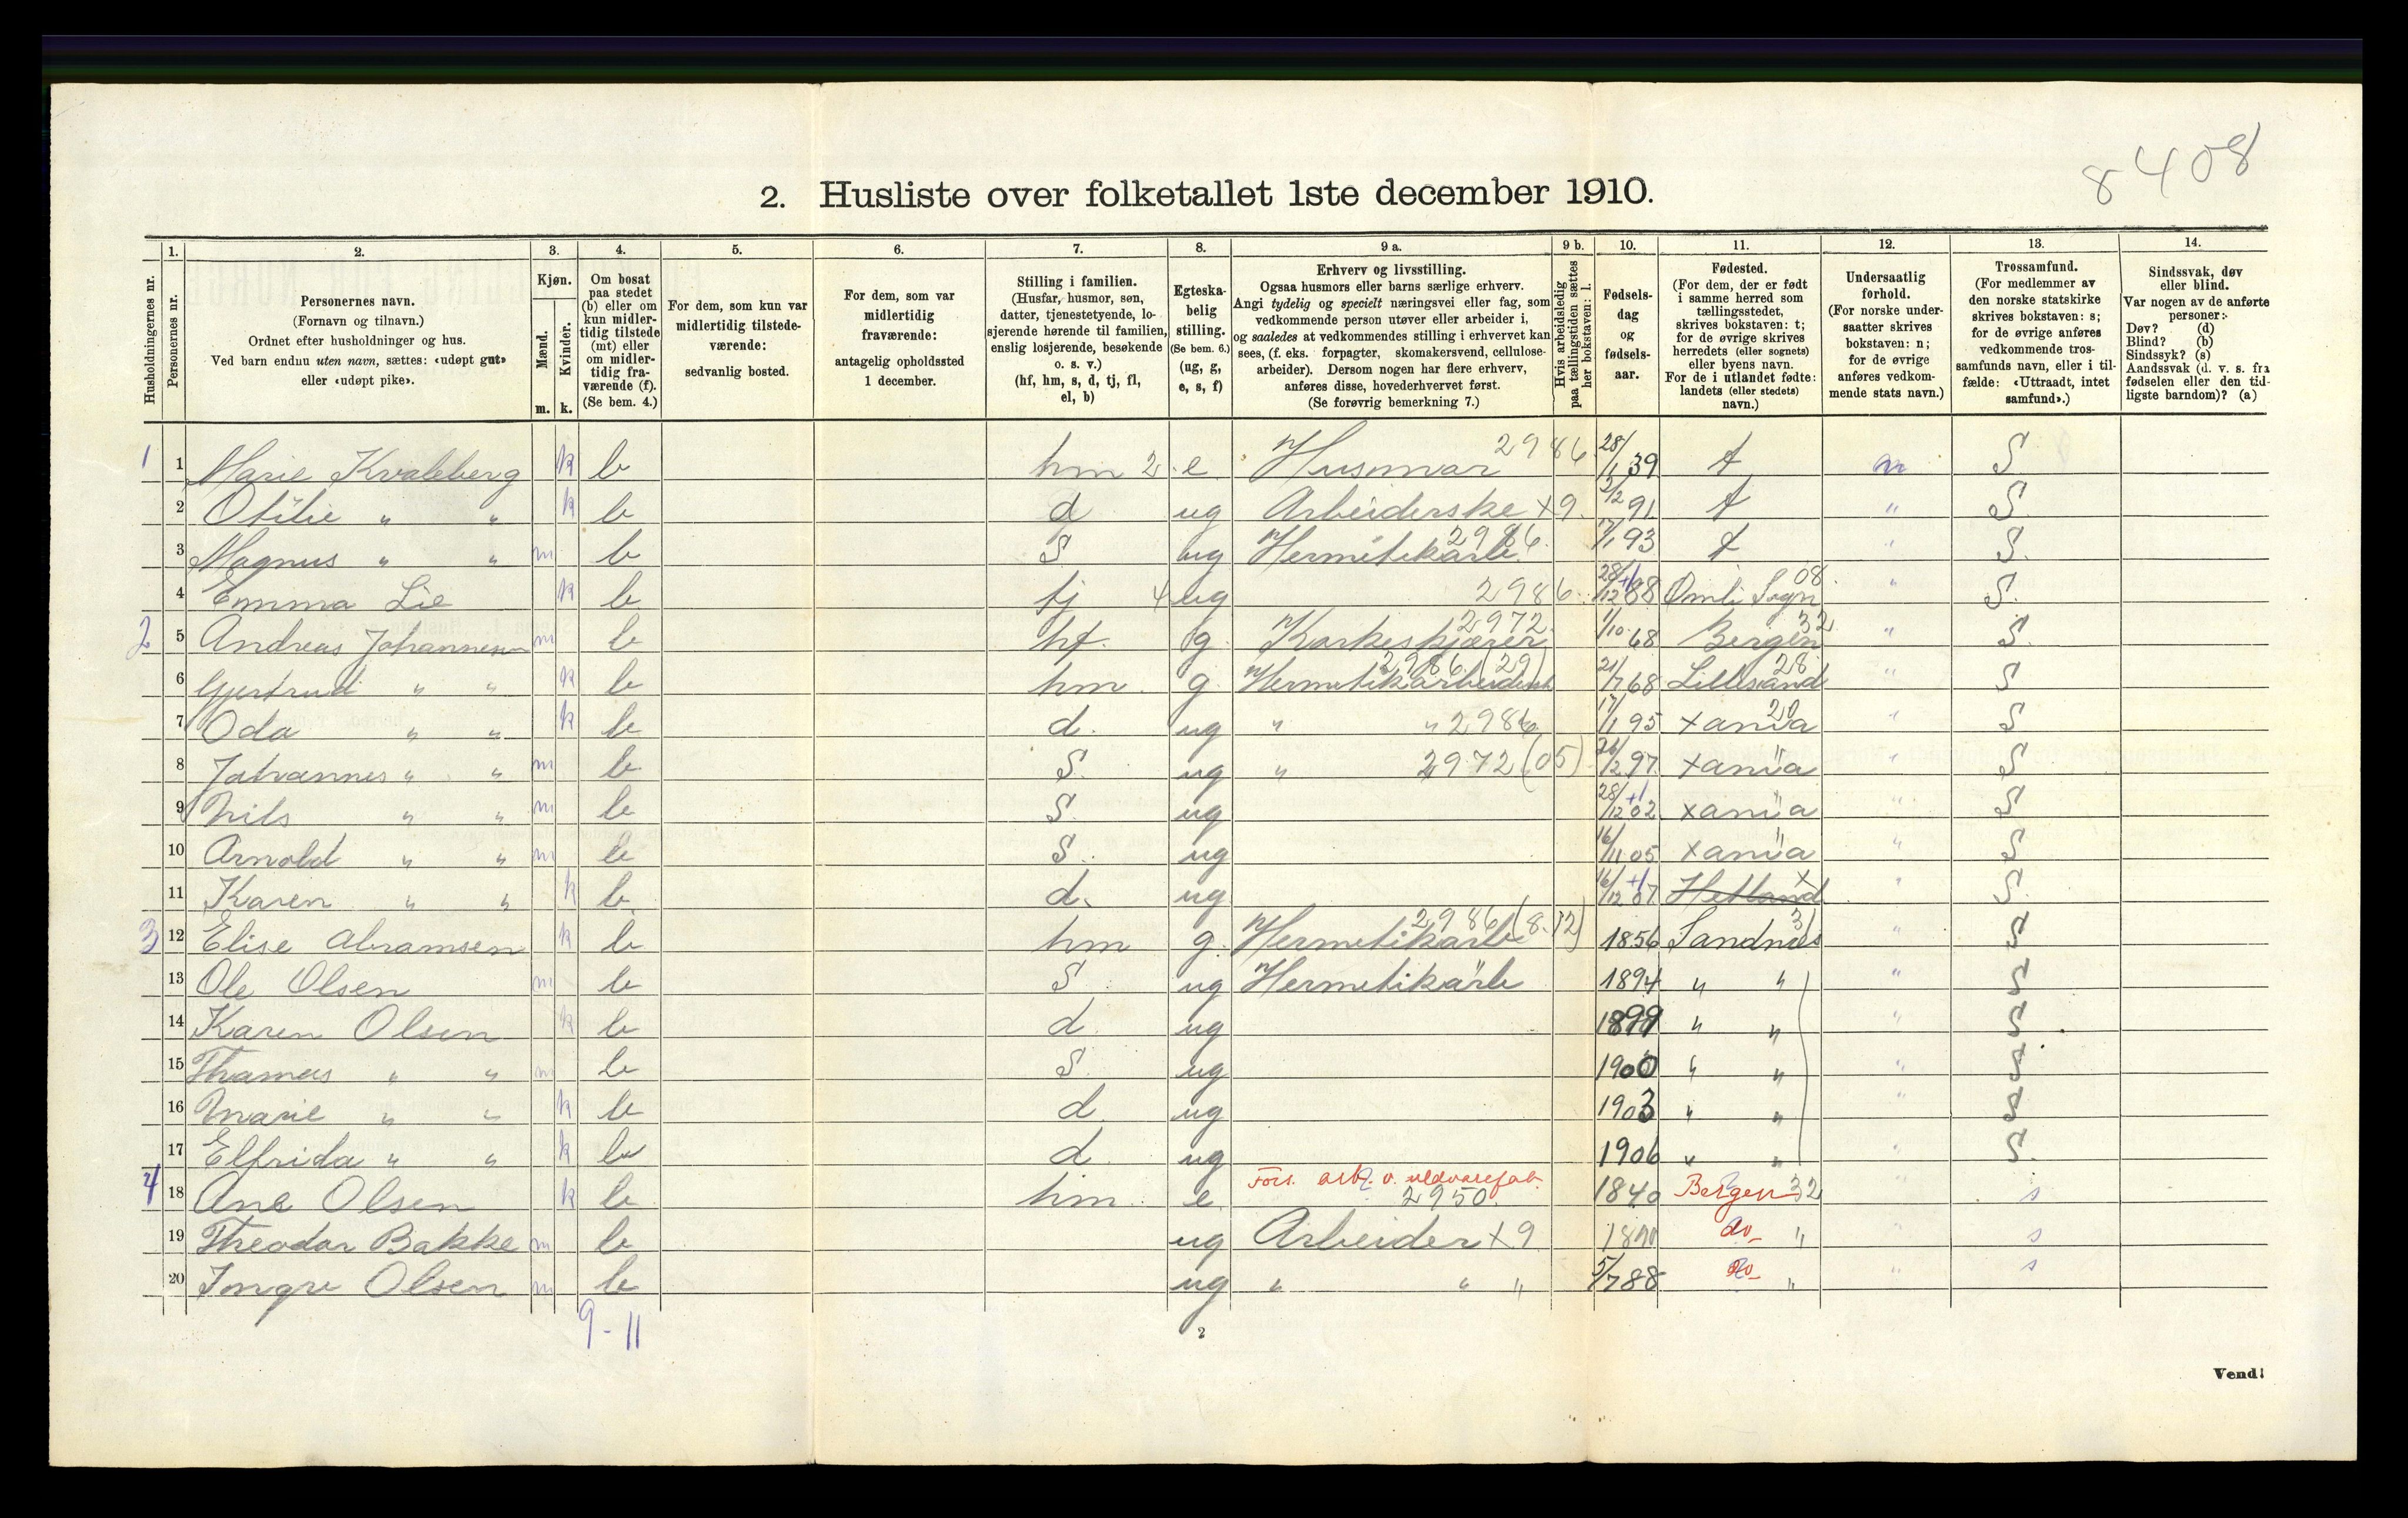 8408
2. Husliste over folketallet 1ste december 1910.
Husholdningernes nr.
1. Personernes nr.
2. Personernes navn. (Fornavn og tilnavn.) Ordnet efter husholdninger og hus. Ved barn endnu uten navn, sættes: «udøpt gut» eller «udøpt pike».
3. Kjøn. Mænd. m. Kvinder. k.
4. Om bosat paa stedet (b) eller om kun midlertidig tilstede (mt) eller om midlertidig fraværende (f). (Se bem. 4.)
5. For dem, som kun var midlertidig tilstedeværende: sedvanlig bosted.
6. For dem, som var midlertidig fraværende: antagelig opholdssted 1 december.
7. Stilling i familien. (Husfar, husmor, søn, datter, tjenestetyende, losjerende hørende til familien, enslig losjerende, besøkende o. s. v.) (hf, hm, s, d, tj, fl, el, b)
8. Egteskabelig stilling. (Se bem. 6.) (ug, g, e, s, f)
9 a. Erhverv og livsstilling. Ogsaa husmors eller barns særlige erhverv. Angi tydelig og specielt næringsvei eller fag, som vedkommende person utøver eller arbeider i, og saaledes at vedkommendes stilling i erhvervet kan sees, (f. eks. forpagter, skomakersvend, cellulosearbeider). Dersom nogen har flere erhverv, anføres disse, hovederhvervet først. (Se forøvrig bemerkning 7.)
9 b. Hvis arbeidsledig paa tællingstiden sættes her bokstaven: l.
10. Fødselsdag og fødselsaar.
11. Fødested. (For dem, der er født i samme herred som tællingsstedet, skrives bokstaven: t; for de øvrige skrives herredets (eller sognets) eller byens navn. For de i utlandet fødte: landets (eller stedets) navn.)
12. Undersaatlig forhold. (For norske undersaatter skrives bokstaven: n; for de øvrige anføres vedkommende stats navn.)
13. Trossamfund. (For medlemmer av den norske statskirke skrives bokstaven: s; for de øvrige anføres vedkommende trossamfunds navn, eller i tilfælde: «Uttraadt, intet samfund».)
14. Sindssvak, døv eller blind. Var nogen av de anførte personer: Døv? (d) Blind? (b) Sindssyk? (s) Aandssvak (d. v. s. fra fødselen eller den tidligste barndom)? (a)
1 1 Marie Kvaleberg k b hm 2 e Husmor 2986 28/1 39 t n S
2 Otilie " " k b d ug Arbeiderske x9 91 t " S
3 Magnus " " m b S ug Hermetikarb. 2986 17/1 93 t " S.
4 Emma Lie k b tj 4 ug 2986 28/12 88 Sogn 08 " S.
2 5 Andreas Johannesen m b hf. g. Korkeskjærer 2972 1/10 68 Bergen 32 " S.
6 Gjertrud " " k b hm. g. Hermetikarbeidersk 2986 (29) 21/7 68 Lillesand 28 " S
7 Oda " " k b d. ug " " 2986 17/1 95 xania 20 " S
8 Johannes " " m b S. ug " 2972 (05) 26/2 97 xania " S
9 Nils " " m b S. ug 28/12 02 +1 xania " S
10 Arnold " " m b S. ug 16/11 05 xania " S
11 Karen " " k b. d. ug 16/12 07 +1 Hetland x " S.
3 12 Elise Abramsen k b hm g. Hermetikarb 2986 (8.12) 1856 Sandnes 31 " S
13 Ole Olsen m b S ug Hermetikarb 1894 " " " S
14 Karen Olsen k b d. ug 1899 " " " S
15 Thomas " " m b S. ug 1900 " " " S
16 Marie " " k b d. ug 1903 " " " S
17 Elfrida " " k b d. ug 1906 " " " S.
4 18 Ane Olsen k b hm. e. Fors. arb. v. uldvarefab. 2950. 1840 Bergen 32 " s
19 Theodor Bakke m b ug Arbeider x9 do " " s
20 Olsen m b ug " " " 5/7 88 do " " s
9 - 11
2
Vend!